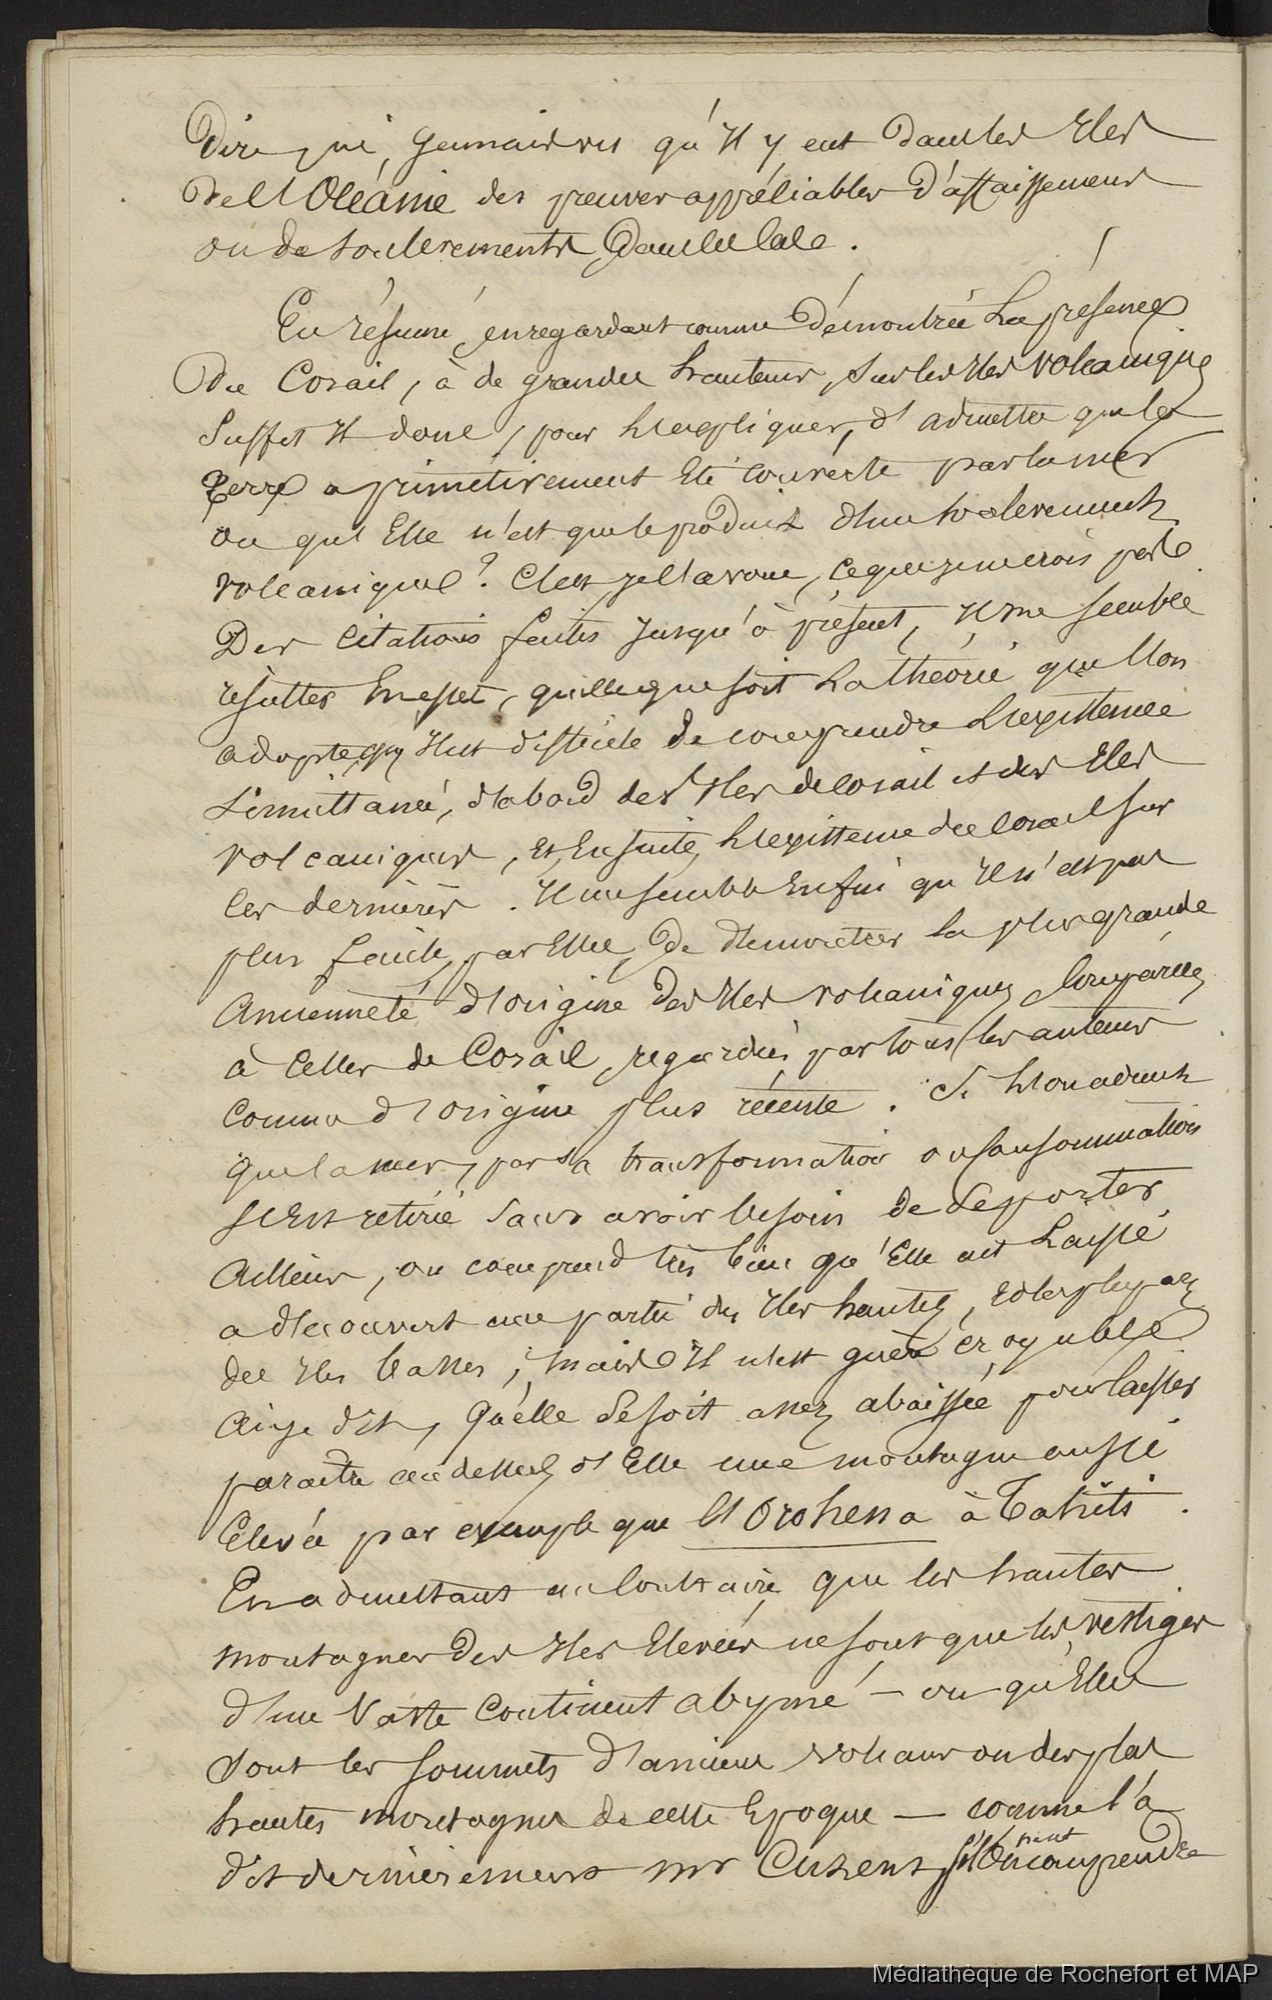 Dire ni, jamais vu qu'il y eut dans les Iles
de l'Océanie des preuves appréciables d'affaissemens
ou de soulevements, dans ce cale.
En résumé, en regardant comme démontrée la présence
du Corail, à de grandes hauteurs, sur les Iles volcaniques
suffit il donc, pour l'expliquer, d'admettre que la
terre a primitivement été couverte par la mer
ou qu'Elle n'est que le produit d'un soulevement
volcanique? C'est, je l'avoue, ce que je ne crois pas.
Des citations faites jusqu'à présent, il me semble
résulter en effet, quelle que soit la théorie que l'on
adopte, qu'il est difficile de comprendre l'existence
simultanée, d'abord des Iles de corail et des Iles
volcaniques, et, ensuite, l'existence du corail sur
ces dernières. Il me semble enfin qu'il n'est pas
plus facile, par Elle, de démontrer la plus grande
ancienneté d'origine des Iles volcaniques, comparées
à celles de Corail, regardées par tous les auteurs
comme d'origine plus récente. Si l'on admet
que la mer, par sa transformation ou sa consommation
s'est retirée sans avoir besoin de se porter
ailleurs, on comprend très bien qu'Elle ait laissé
a découvert une partie des Iles hautes, et la plupart
des Iles basses; mais il n'est guère croyable
ai-je dit, qu'elle se soit assez abaissée pour laisser
paraitre au dessus d'Elle une montagne aussi
élevée par exemple que l'Orohena à Tahiti.
En admettant au contraire, que les hautes
montagnes des Iles élevées ne sont que les vestiges
d'un vaste Continent abymé — ou qu'Elles
sont les sommets d'anciens volcans ou des plus
hautes montagnes de cette Epoque — comme l'a
dit dernièrement Mr Cuzent, peut
comprendre
Médiathèque de Rochefort et MAP